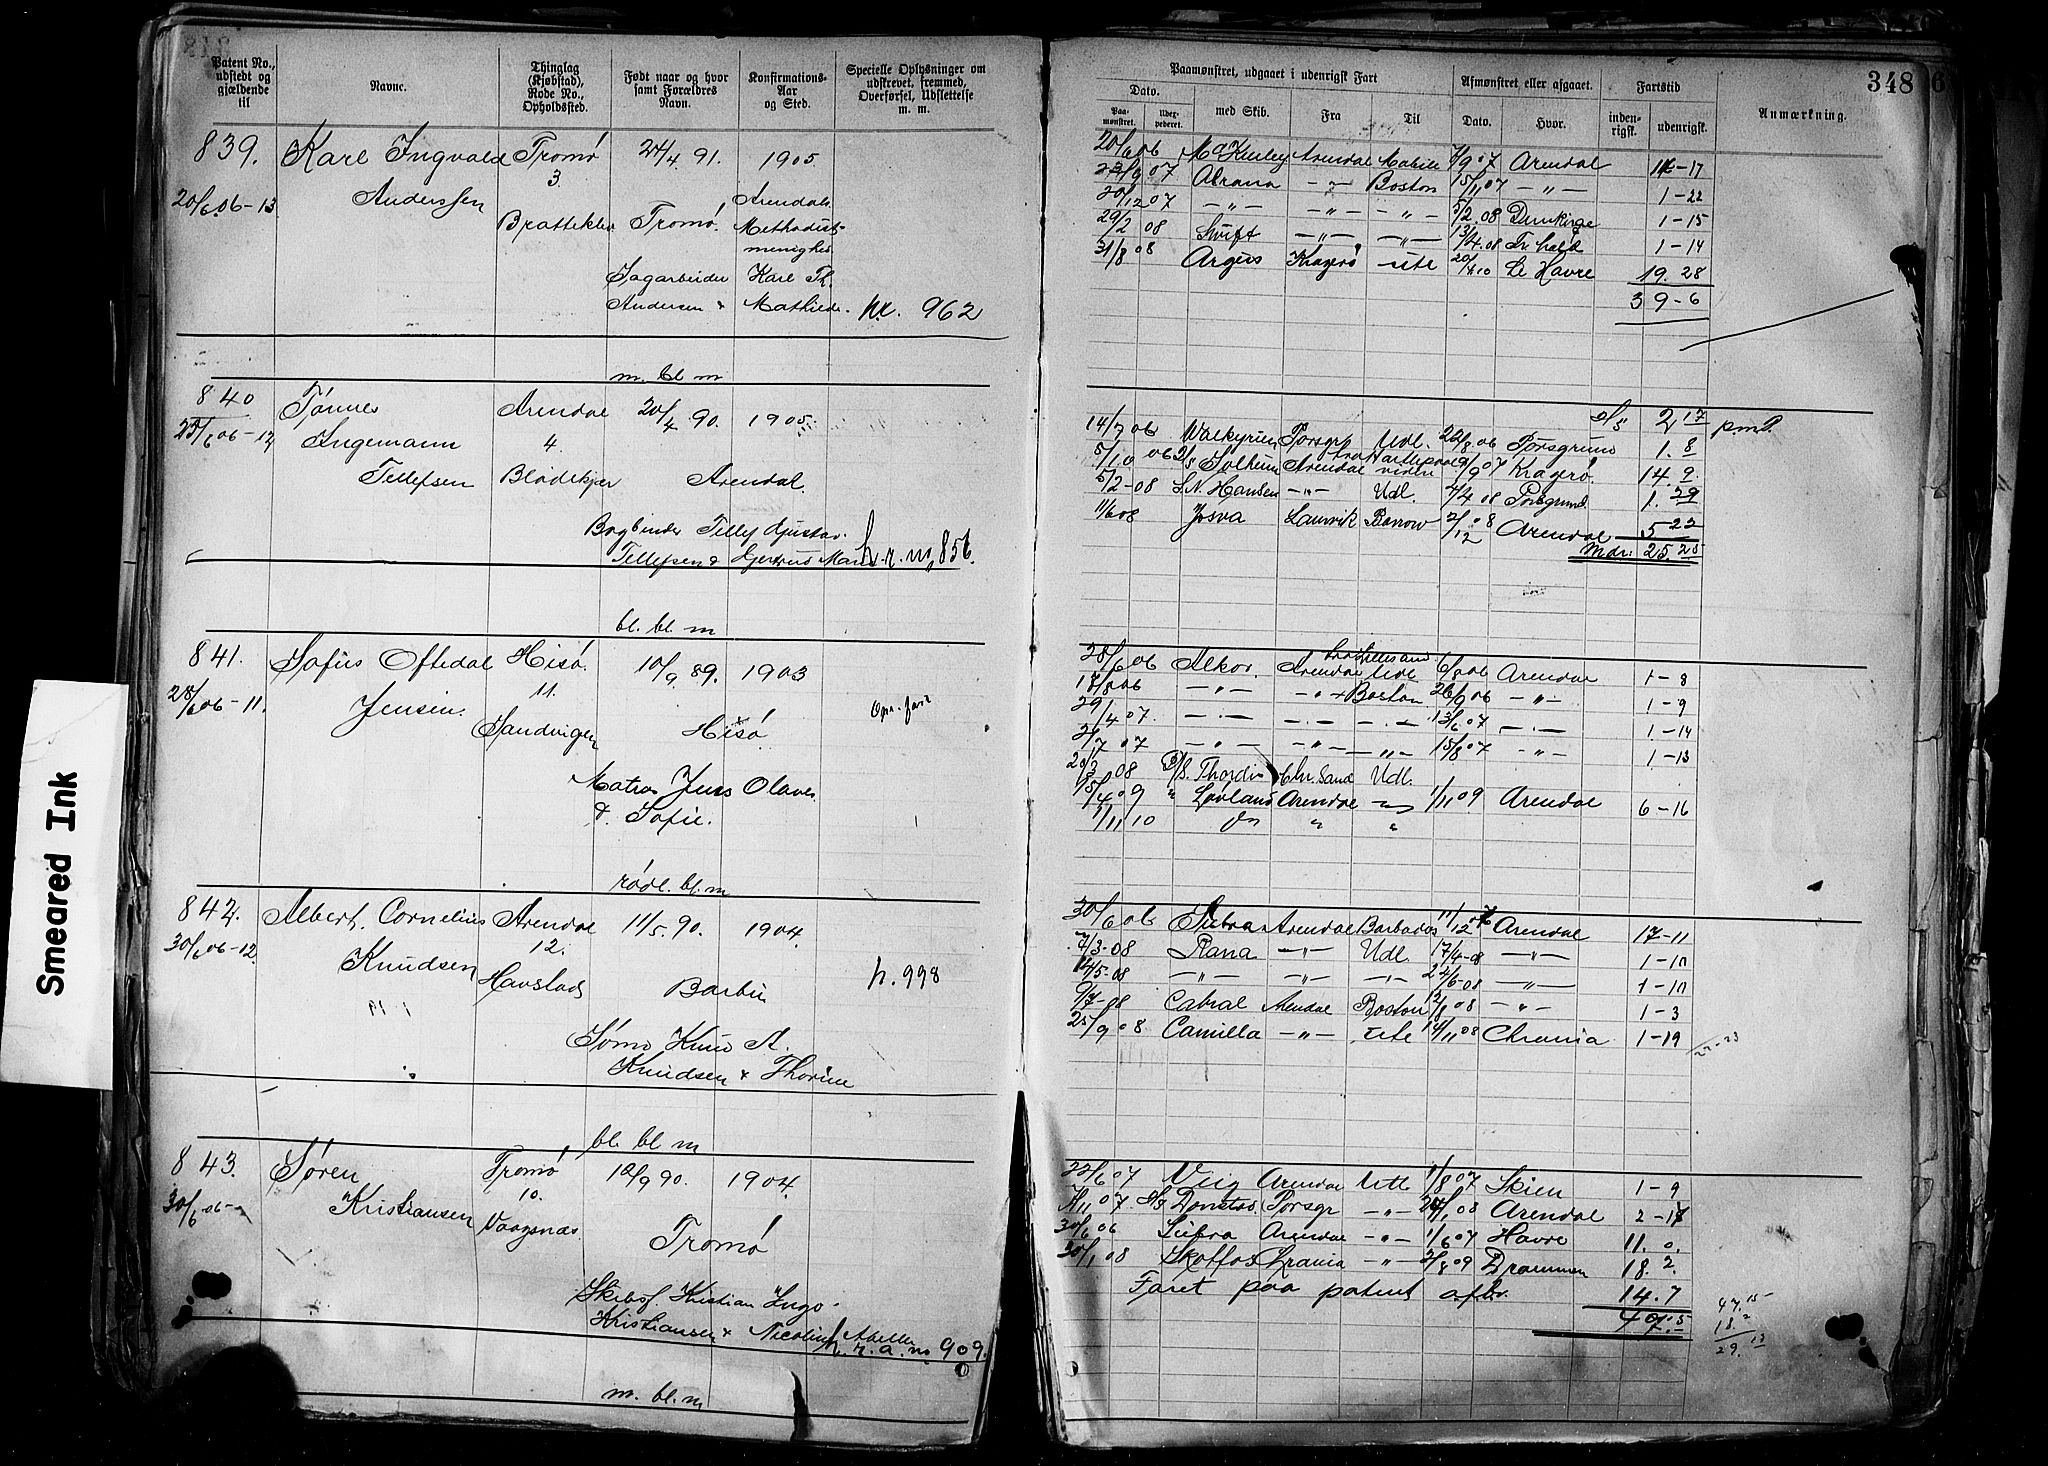 348
6
Patent No., udstedt og gjældende til
Navne.
Thinglag (Kjøbstad), Rode No., Opholdssted.
Født naar og hvor samt Forældres Navn.
Konfirmations-Aar og Sted.
Specielle Oplysninger om udskrevet, fremmed, Overførsel, Udslettelse m. m.
Paamønstret, udgaaet i udenrigsk Fart
Afmønstret eller afgaaet.
Fartstid
Anmærkning.
Dato.
med Skib.
Fra
Til
Dato.
Hvor.
inden-rigsk.
udenrigsk.
Paa-mønstret.
839. Karl Ingvald Tromø 24/4 91. 1905.
Anderssen 3.
20/6 06-13 Brattekler Tromø. Arendals
Methodist-
menighed
Sagarbeider Karl Th.
Andersen & Mathilde. nr. 962
m. bl m
20/6 06 Mc Kinley Arendal Mobile 7/9 07 Arendal 14-17
23/9 07 Abrana -"- Boston 15/11 07 -"- 1-22
20/12 07 -"- -"- -"- 5/2 08 Dunkirge 1-15
29/2 08 Swift -"- -"- 13/4 08 Fr hald 1-14
31/8 08 Argus Kragerø ute 20/4 10 Le Havre 19. 28
39-6
840 Tønnes Arendal 20/4 90. 1905.
25/6 06-12 Ingemann 4.
Tellefsen Blødekjær Arendal.
Bogbinder Tellef Gustav
Tellefsen & Gjertrud Marie h. r. no 856.
bl. bl m
2 17 p.m.P.
14/7 06 Walkyrien Porsgr Udl. 22/8 06 Porsgrund 1. 8
5/10 06 Solheim Arendal 07 Kragerø. 14. 9
5/2-08 S.N. Hansen -"- Udl. 4/4 08 Porsgrund 1. 29
11/6 08 Josva Laurvik Barrow 2/12 08 Arendal 5 22
Mdr: 25. 25
841. Sofus Oftedal Hisø. 10/9 89. 1903
28/6 06-11. Jensen. 11.
Sandvigen Hisø
Matros Jens Olaves
& Sofie.
rødl. bl. m
28/6 06 Alkor. Arendal Udl 6/8 06 Arendal 1-8
17/8 06 -"- -"- Boston 26/9 06 -"- 1-9
29/4 07. -"- -"- -"- 13/6 07 -"- 1-14
2/7 07 -"- -"- -"- 15/8 07 -"- 1-13
20/3 08 D/S. Thordis Chr. Sand Udl.
15/4 09 " Lovland Arendal -"- 1/11 09 Arendal 6-16
1/11 10 do " "
842. Albert. Cornelius Arendal 11/5. 90. 1904.
30/6 06-12. Knudsen 12.
Havstads Barbu h. 998
Sømd Knud A.
Knudsen & Thorine
bl. bl m
30/6 06 Subra Arendal Barbados 11/12 07 Arendal 17-11
7/3-08 Rana -"- Udl. 17/4-08 -"- 1-10
14/5-08 -"- -"- -"- 24/6-08 -"- 1-10
9/7-08 Cabral Arendal Boston 12/8 08 -"- 1-3
25/9 08 Camilla -"- ute 14/11 08 Chrania 1-19
22-23
843. Søren Tromø 12/9 90. 1904.
30/6 06- Kristiansen 10.
Vaagsnæs Tromø
Skibsf. Kristian Ingo.
Kristiansen & Nicoline Abelle h. r. a. no 909.
m. bl. m
22/6 07 Veig Arendal Ute 1/8 07 Skien 1-9
4/11 07 Porsgr -"- 24/1 08 Arendal 2-17
30/6 06 Subra Arendal -"- 1/6 07 Havre 11. 0.
30/1 08 Skotfos Chrania -"- 2/8 09 Drammen 18. 2.
Faret paa patent after 14.7
47. 5
47. 15
18. 2
29. 13
Smeared Ink